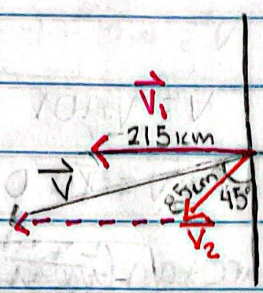 V₁
215 km
V
85 km
45°
V₂